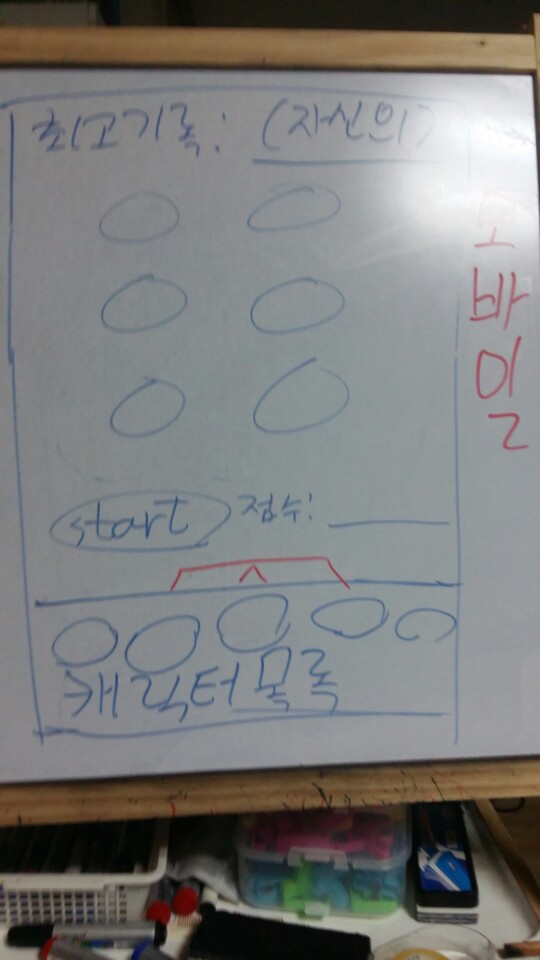 최고기록: (자신의)
모바일
start 점수:
캐릭터목록